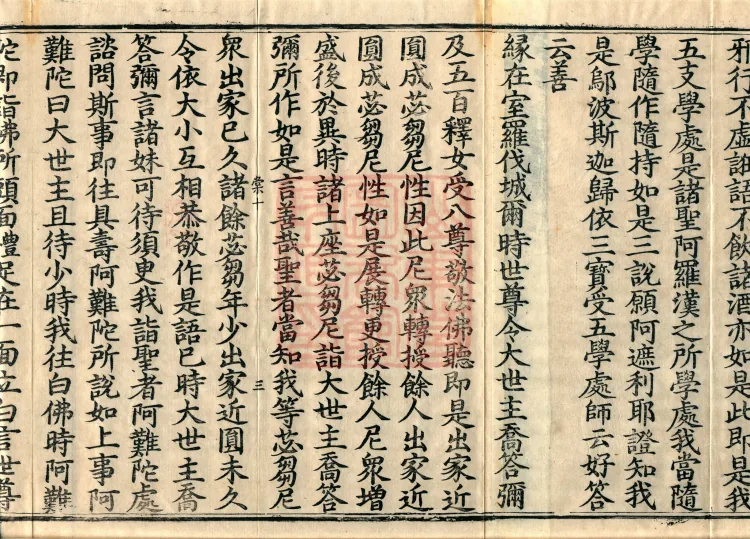 邪行不虛誑語不飲諸酒亦如是此即是我
五支學處是諸聖阿羅漢之所學處我當隨
學隨作隨持如是三說願阿遮利耶證知我
是鄔波斯迦歸依三寶受五學處師云好答
云善
緣在室羅伐城爾時世尊令大世主喬答彌
及五百釋女受八尊敬法佛聽即是出家近
圓成苾芻尼性因此尼眾轉授餘人出家近
圓成苾芻尼性如是展轉更授餘人尼眾增
盛後於異時諸上座苾芻尼詣大世主喬答
彌所作如是言善哉聖者當知我等苾芻尼
棠十
三
眾出家已久諸餘苾芻年少出家近圓未久
令依大小互相恭敬作是語已時大世主喬
答彌言諸妹可待須更我詣聖者阿難陀處
諮問斯事即往具壽阿難陀所說如上事阿
難陀曰大世主且待少時我往白佛時阿難
陀即詣佛所頭面禮足在一面立白言世尊